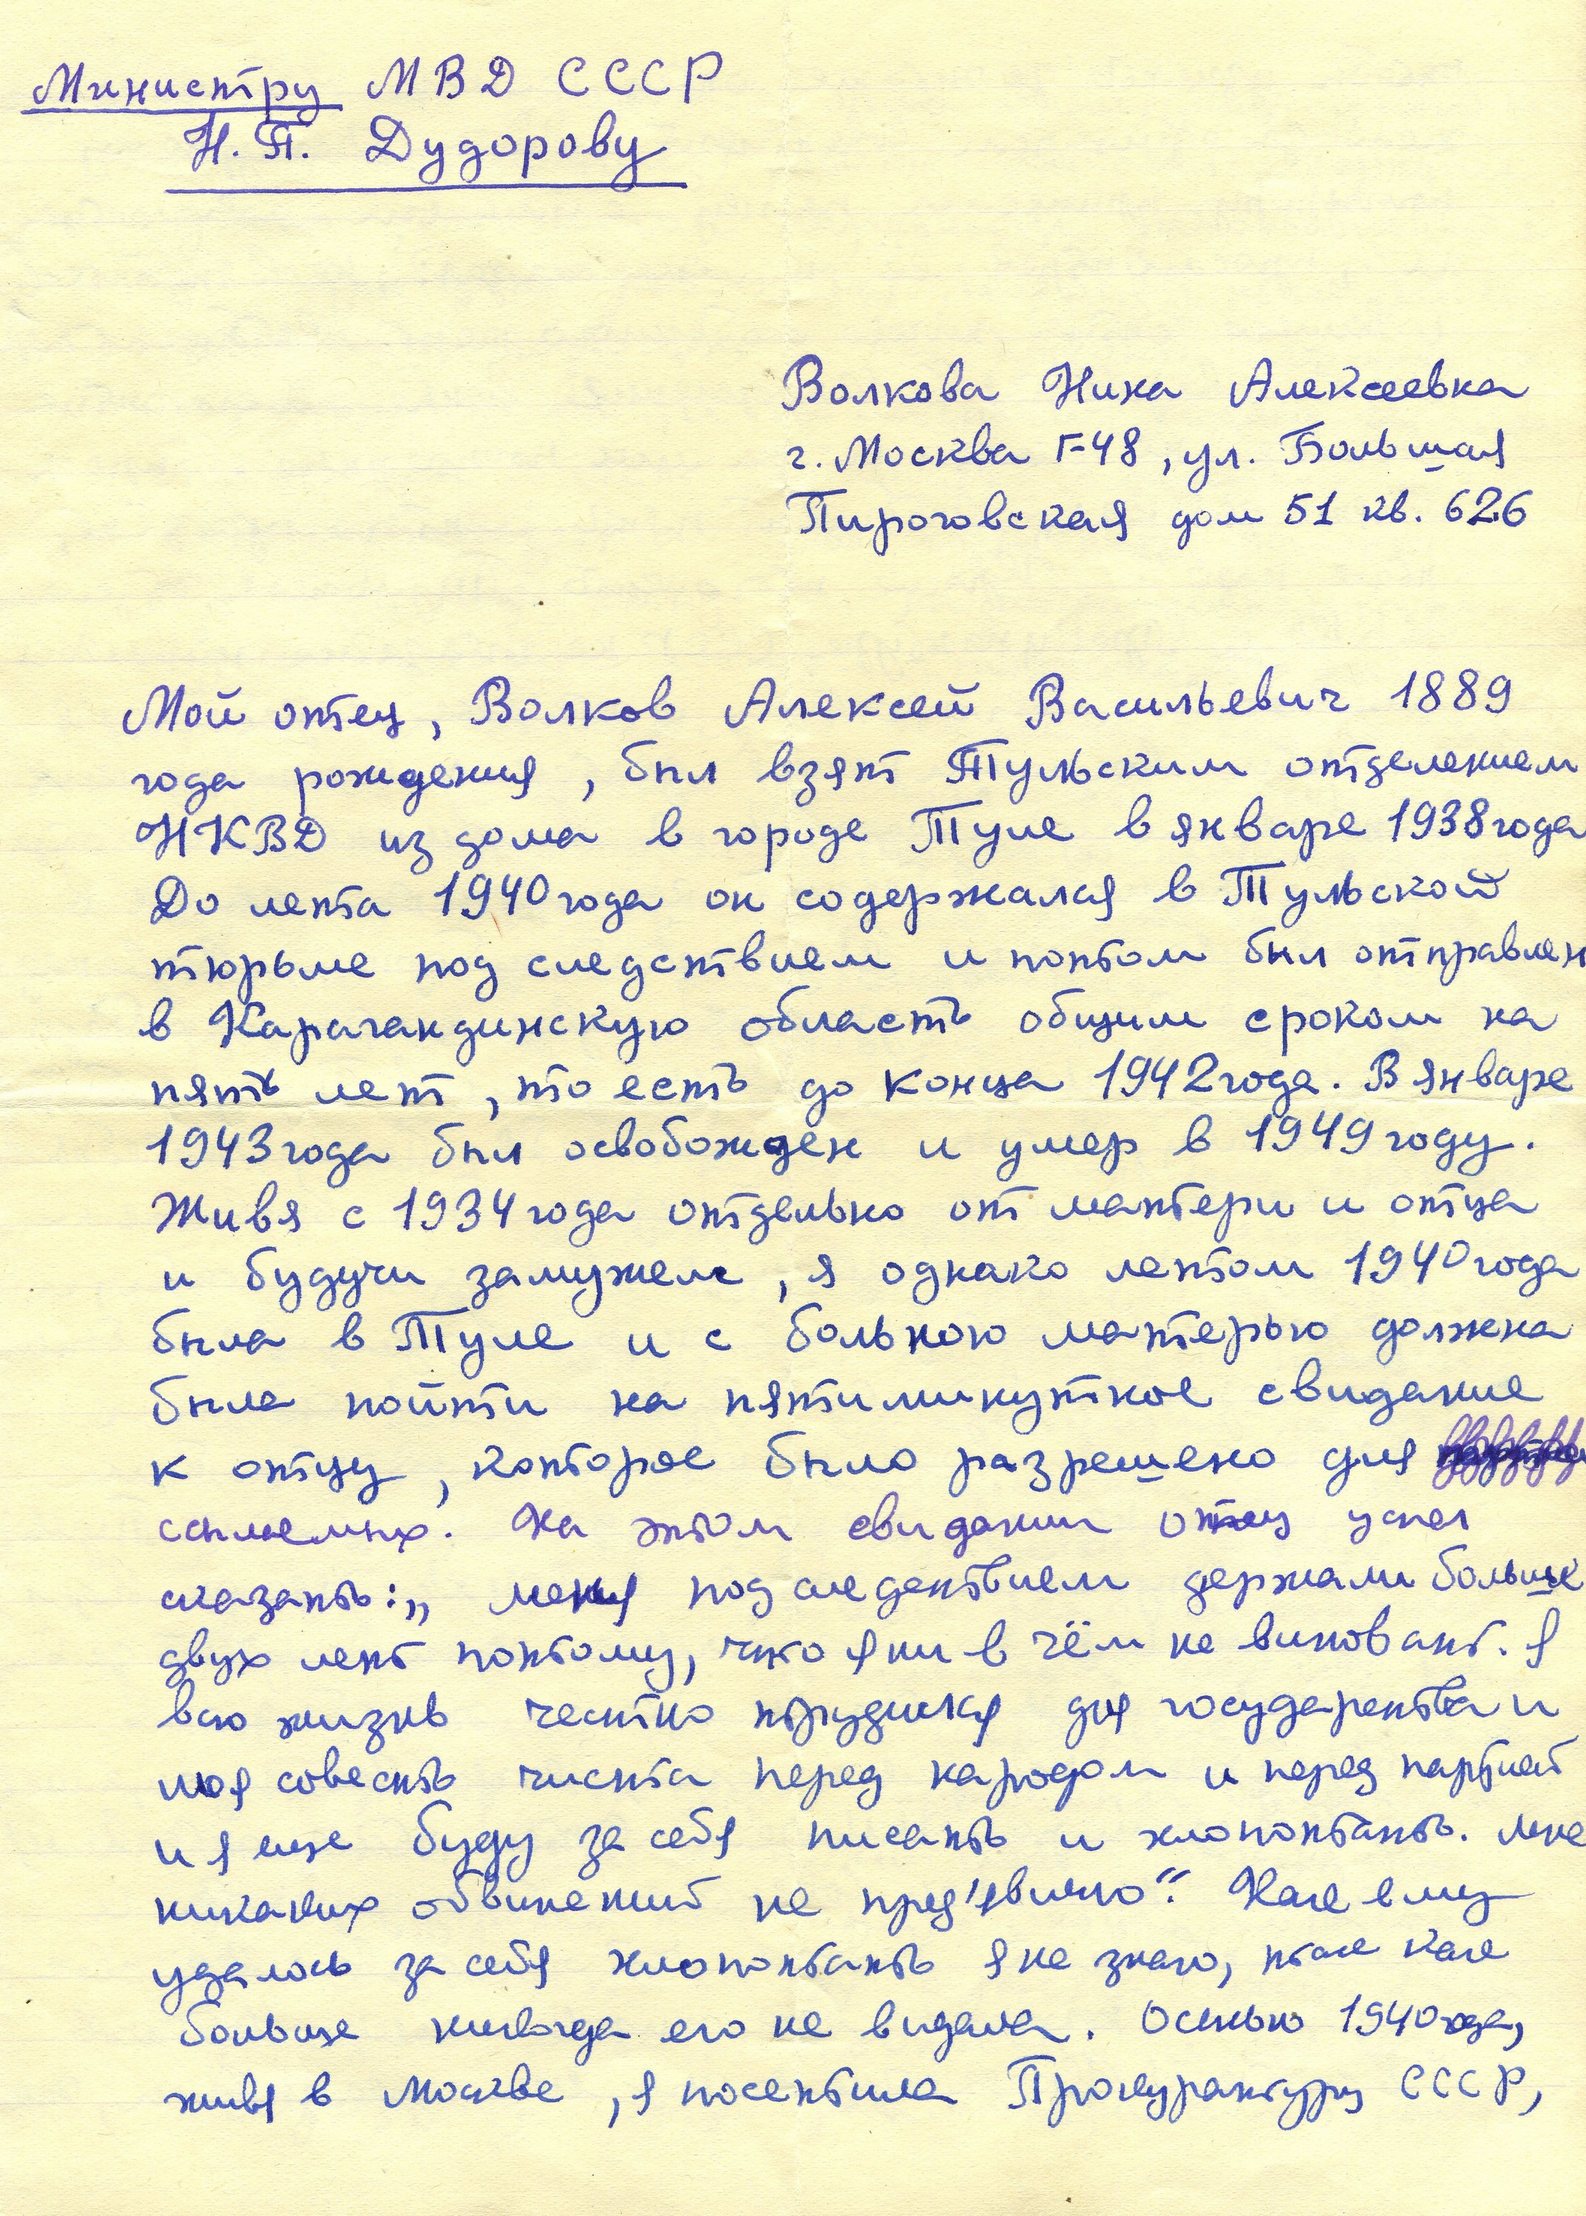 Министру МВД СССР
Н.П. Дудорову
Волкова Нина Алексеевна
г. Москва Г-48, ул. Большая
Пироговская дом 51 кв. 626
Мой отец, Волков Алексей Васильевич 1889
года рождения, был взят Тульским отделением
НКВД из дома в городе Туле в январе 1938 года
До лета 1940 года он содержался в Тульской
тюрьме под следствием и потом был отправлен
в Карагандинскую область общим сроком на
пять лет, то есть до конца 1942 года. В январе
1943 года был освобожден и умер в 1949 году.
Живя с 1934 года отдельно от матери и отца
и будучи замужем, я однако летом 1940 года
была в Туле и с больною матерью должна
была пойти на пятиминутное свидание
к отцу, которое было разрешено для
ссылаемых. На этом свидании отец успел
сказать: „меня под следствием держали больше
двух лет потому, что я ни в чём не виноват. Я
всю жизнь честно трудился для государства и
моя совесть чиста перед народом и перед партией
и я еще буду за себя писать и хлопотать. Мне
никаких обвинений не пред'явило“. Как ему
удалось за себя хлопотать я не знаю, так как
больше никогда его не видала. Осенью 1940 года,
живя в Москве, я посетила Прокуратуру СССР,